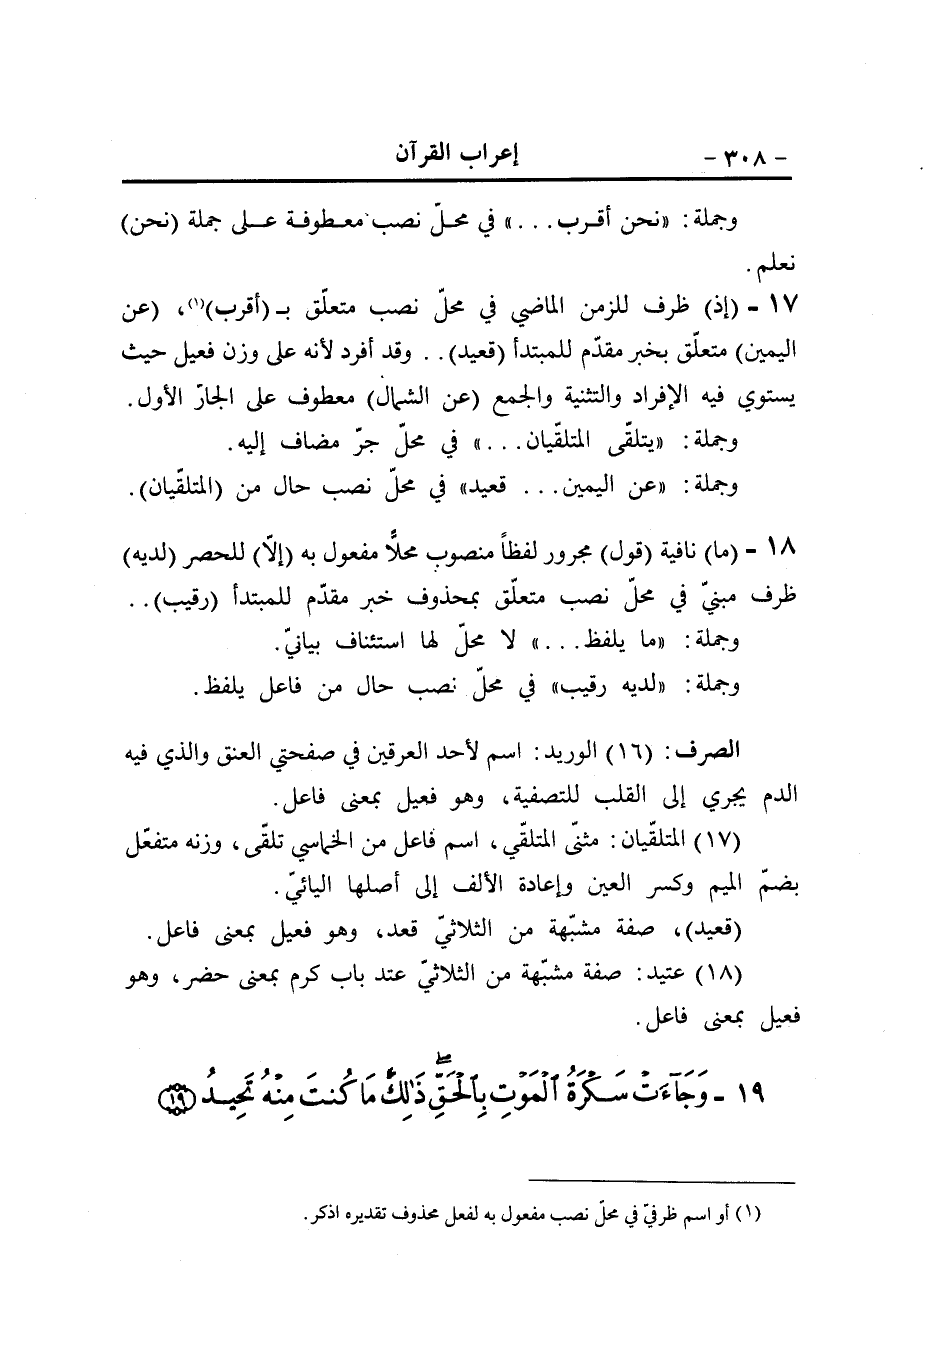 - ٣٠٨ - إعراب القرآن
وجملة: «نحن أقرب...» في محلّ نصب معطوفة على جملة (نحن)
نعلم.
١٧ - (إذ) ظرف للزمن الماضي في محلّ نصب متعلّق بـ (أقرب)(١)، (عن
اليمين) متعلّق بخبر مقدّم للمبتدأ (قعيد).. وقد أفرد لأنه على وزن فعيل حيث
يستوي فيه الإفراد والتثنية والجمع (عن الشمال) معطوف على الجارّ الأول.
وجملة: «يتلقّى المتلقّيان...» في محلّ جرّ مضاف إليه.
وجملة: «عن اليمين... قعيد» في محلّ نصب حال من (المتلقّيان).
١٨ - (ما) نافية (قول) مجرور لفظاً منصوب محلًّا مفعول به (إلّا) للحصر (لديه)
ظرف مبنيّ في محلّ نصب متعلّق بمحذوف خبر مقدّم للمبتدأ (رقيب)..
وجملة: «ما يلفظ...» لا محلّ لها استئناف بيانيّ.
وجملة: «لديه رقيب» في محلّ نصب حال من فاعل يلفظ.
الصرف: (١٦) الوريد: اسم لأحد العرقين في صفحتي العنق والذي فيه
الدم يجري إلى القلب للتصفية، وهو فعيل بمعنى فاعل.
(١٧) المتلقّيان: مثنّى المتلقّي، اسم فاعل من الخماسي تلقّى، وزنه متفعّل
بضمّ الميم وكسر العين وإعادة الألف إلى أصلها اليائيّ.
(قعيد)، صفة مشبّهة من الثلاثيّ قعد، وهو فعيل بمعنى فاعل.
(١٨) عتيد: صفة مشبّهة من الثلاثيّ عتد باب كرم بمعنى حضر، وهو
فعيل بمعنى فاعل.
١٩ - وَجَآءَتْ سَكْرَةُ ٱلْمَوْتِ بِٱلْحَقِّ ۖ ذَٰلِكَ مَا كُنتَ مِنْهُ تَحِيدُ ١٩
(١) أو اسم ظرفيّ في محلّ نصب مفعول به لفعل محذوف تقديره اذكر.